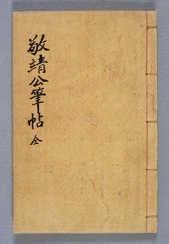 敬靖公筆帖 全